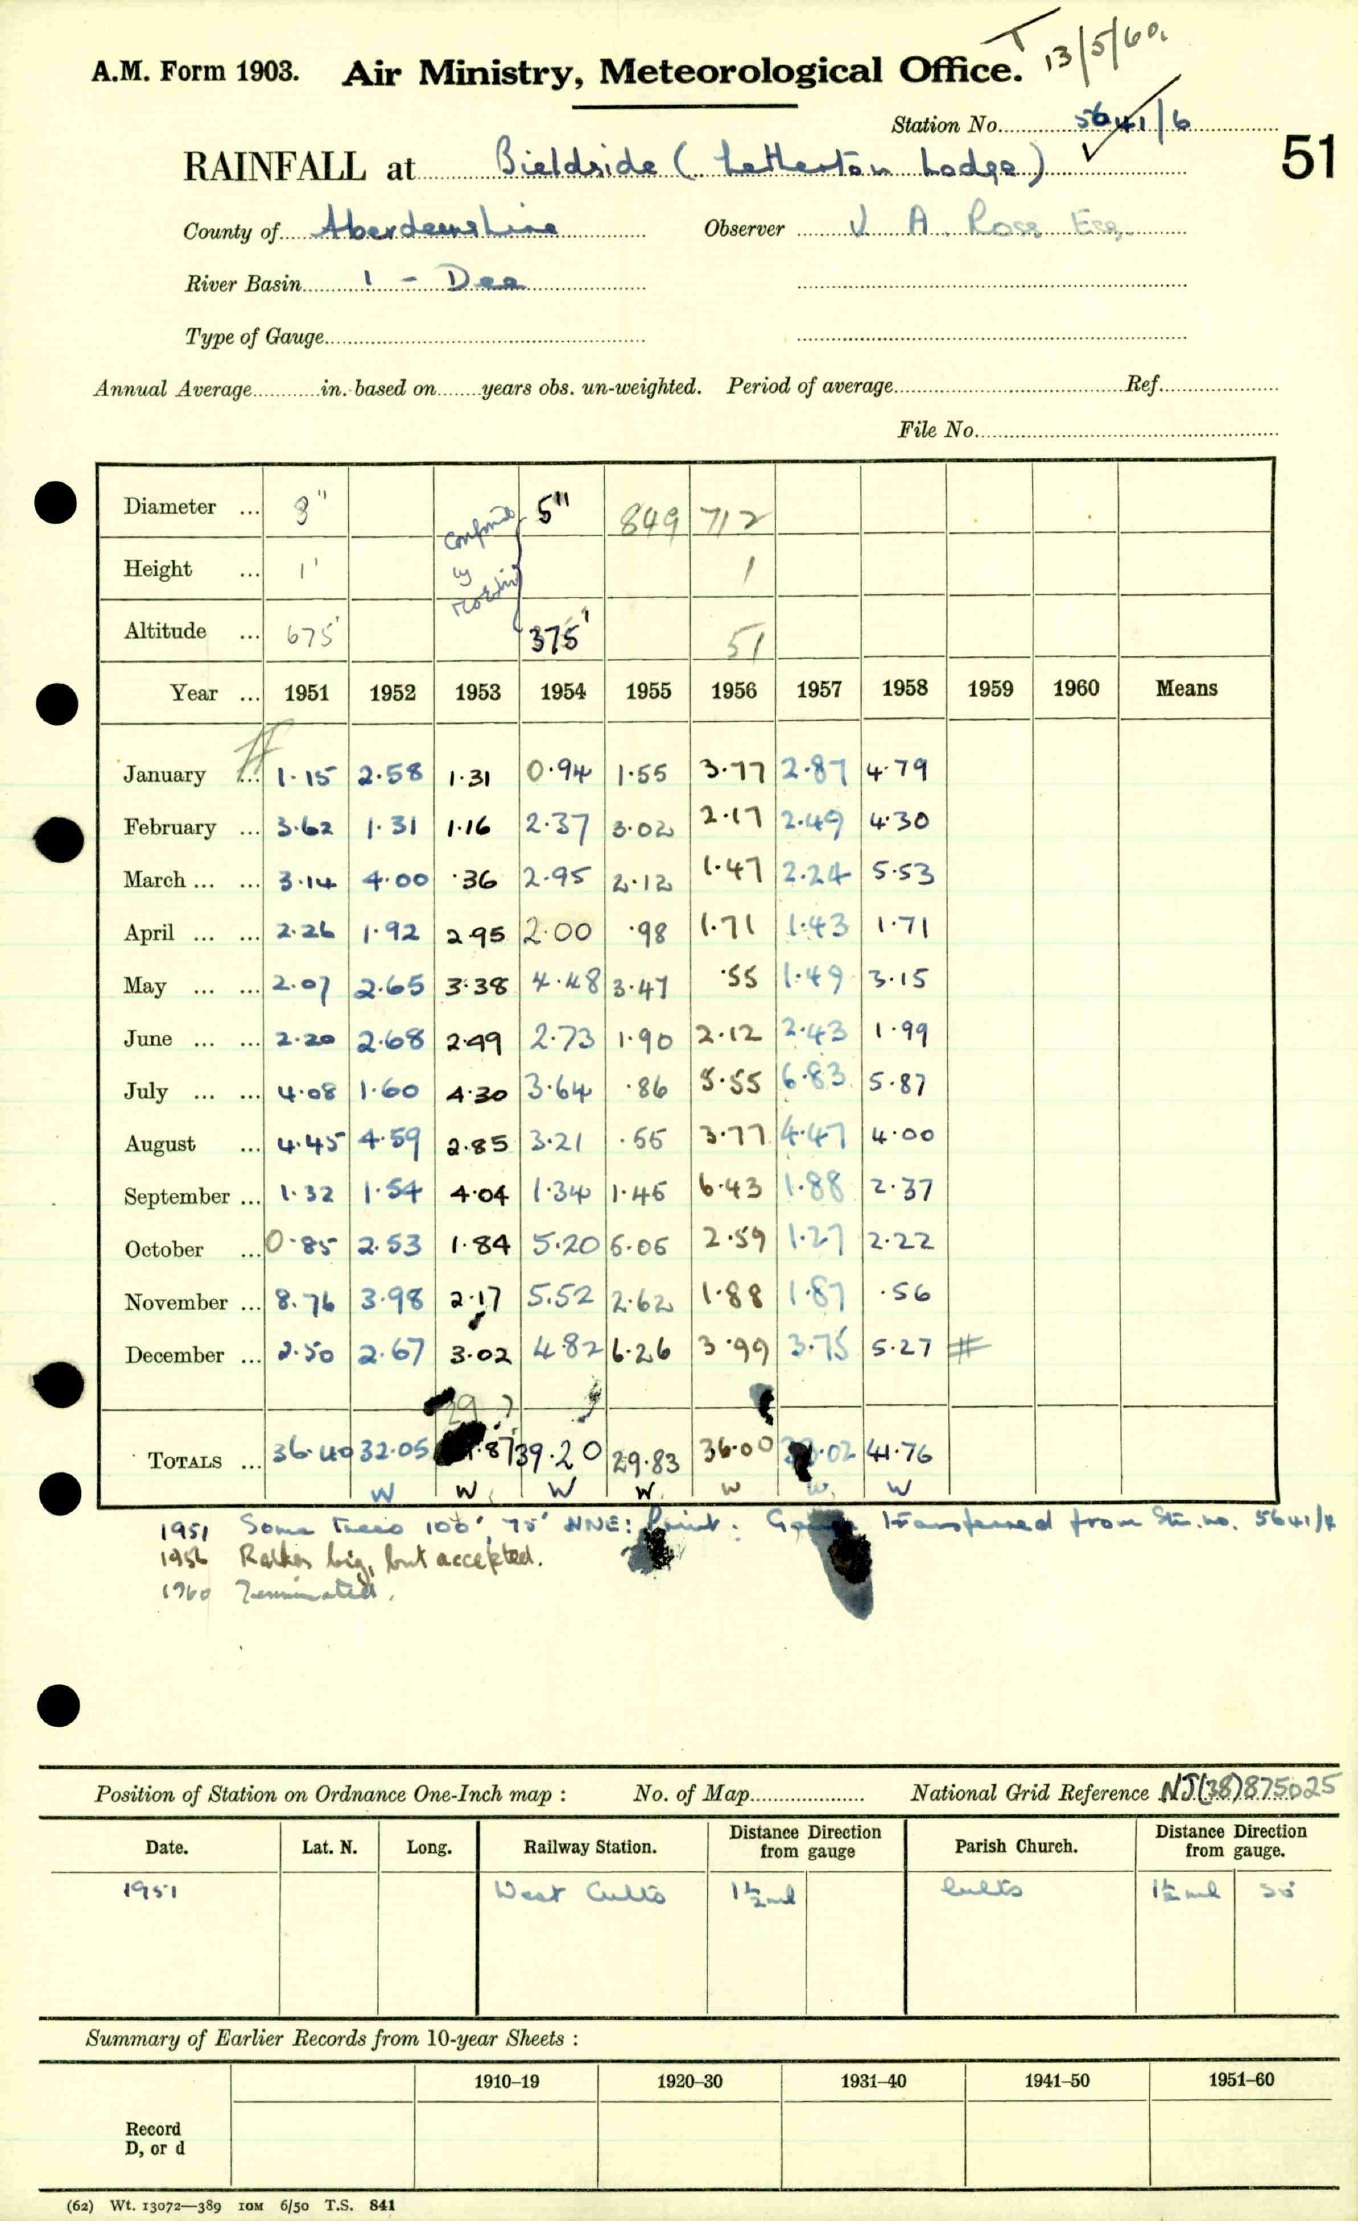 T 13/5/60.
A.M. Form 1903. Air Ministry, Meteorological Office.
Station No. 5641/6
51
RAINFALL at Bieldside (Letterton Lodge)
County of Aberdeenshire Observer J. A. Ross Esq.
River Basin 1 - Dee
Type of Gauge
Annual Average in. based on years obs. un-weighted. Period of average Ref.
File No.
Diameter ... 8" 5" 849 712
Height ... 1' 1
Altitude ... 675' 375' 51
Year ... 1951 1952 1953 1954 1955 1956 1957 1958 1959 1960 Means
January ... 1.15 2.58 1.31 0.94 1.55 3.77 2.87 4.79
February ... 3.62 1.31 1.16 2.37 3.02 2.17 2.49 4.30
March ... ... 3.14 4.00 .36 2.95 2.12 1.47 2.24 5.53
April ... ... 2.26 1.92 2.95 2.00 .98 1.71 1.43 1.71
May ... ... 2.07 2.65 3.38 4.48 3.47 .55 1.49 3.15
June ... ... 2.20 2.68 2.49 2.73 1.90 2.12 2.43 1.99
July ... ... 4.08 1.60 4.30 3.64 .86 5.55 6.83 5.87
August ... 4.45 4.59 2.85 3.21 .55 3.77 4.47 4.00
September ... 1.32 1.54 4.04 1.34 1.45 6.43 1.88 2.37
October ... 0.85 2.53 1.84 5.20 5.05 2.59 1.27 2.22
November ... 8.76 3.98 2.17 5.52 2.62 1.88 1.87 .56
December ... 2.50 2.67 3.02 4.82 6.26 3.99 3.75 5.27 #
29 ?
TOTALS ... 36.40 32.05 .87 39.20 29.83 36.00 .02 41.76
W W W W W W W
1951 Some trees 100', 75' NNE: transferred from Stn. no. 5641/
1956 Rather big, but accepted.
1960 Terminated.
Position of Station on Ordnance One-Inch map : No. of Map National Grid Reference NJ(38)875025
Date. Lat. N. Long. Railway Station. Distance Direction from gauge Parish Church. Distance Direction from gauge.
1951 West Cults 1½ ml Cults 1½ ml
Summary of Earlier Records from 10-year Sheets :
1910–19 1920–30 1931–40 1941–50 1951–60
Record
D, or d
(62) Wt. 13072—389 10M 6/50 T.S. 841